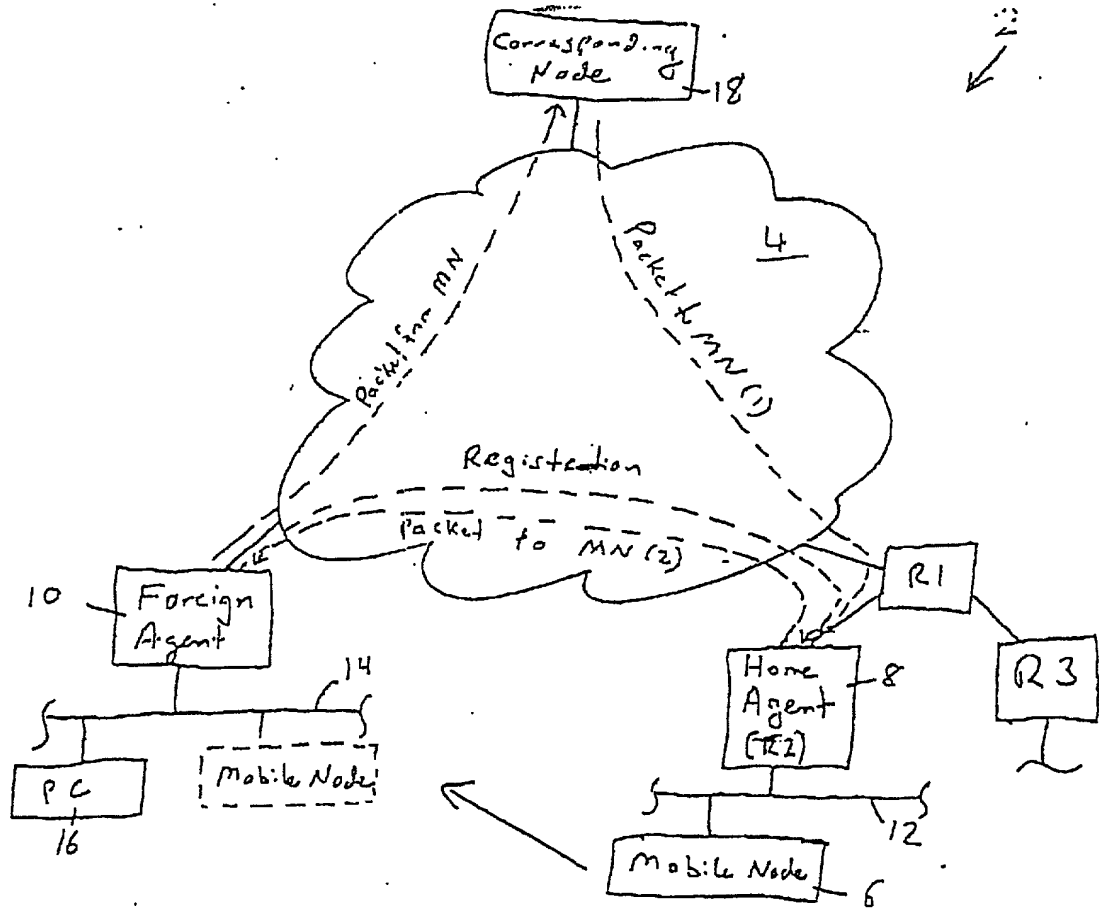 Corresponding
Node
18
4
Packet from MN
Packet to MN (1)
Registration
Packet to MN (2)
R1
10
Foreign
Agent
Home
Agent
(R2)
8
R3
14
Mobile Node
PC
16
12
Mobile Node
6